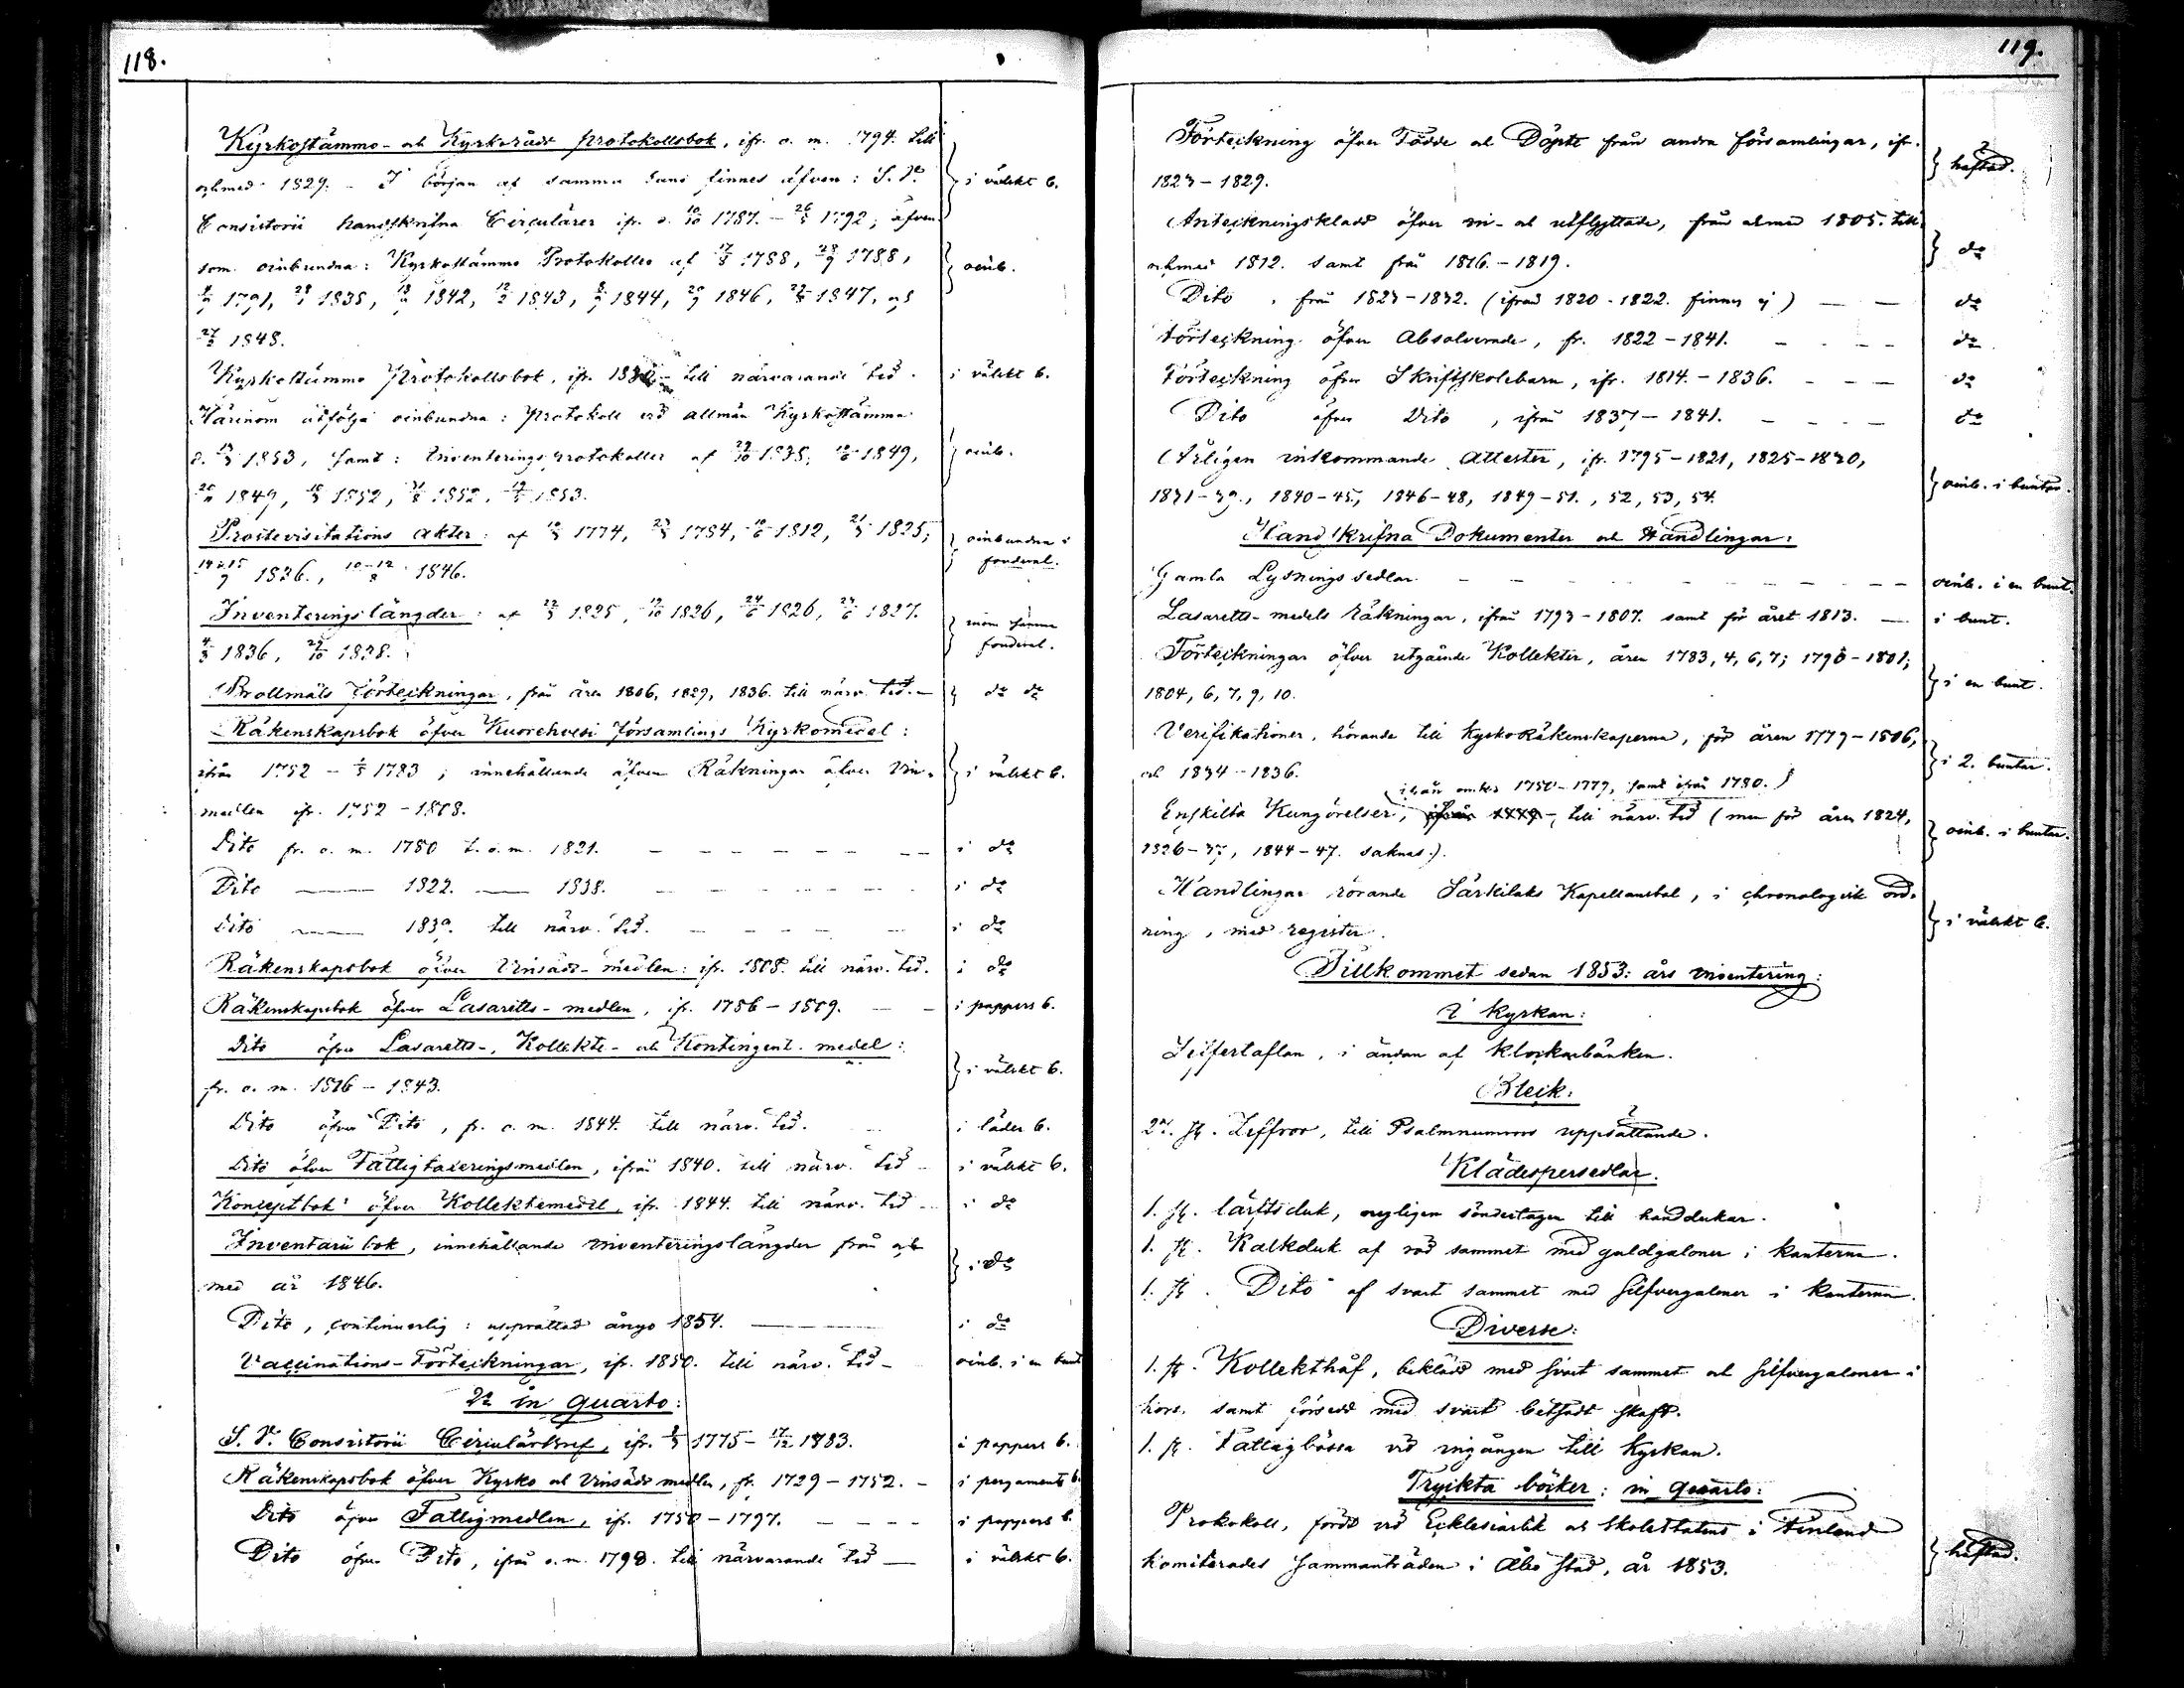 118.
Kyrkostämmo- och Kyrkoråds protokollsbok, ifr. o. m. 1794. till
ochmed 1829. - I början af samma finnes äfven: S. V.
Consistorii handskrifna Circulärer ifr. d. 10/10 1787. - 26/5 1792; äfven- } i välskt b.
som oinbundna: Kyrkostämmo Protokoller af 17/8 1788, 28/9 1788, } oinb.
1791, 1838, 1842, 1843, 1844, 1846, 1847, och
1848.
Kyrkostämmo Protokollsbok, ifr. till närvarande tid. i välskt b.
Härinom åtfölja oinbundna: Protokoll vid allmän Kyrkostämma
d. 1853, samt: Inventerings protokoller af 29/10 1838, 1849, } oinb.
1849, 1852, 1852, 1853.
Prostevisitations Akter: af 1774, 1784, 1812, 1825, } oinbundna i
14 & 15/9 1836., 10-12/8 1846. foderal.
Inventeringslängder: af 1825, 1826, 24/6 1826, 1827. } inom samma
4/3 1836, 29/10 1838. foderal.
Qvollmäls Förteckningar, från åren 1806, 1829, 1836. till närv. tid. - } do do
Räkenskapsbok öfver Kuorehvesi församlings Kyrkomedel:
ifrån 1752 - 1/5 1783; innehållande äfven Räkningar öfver Vin- } i välskt b.
medlen ifr. 1752 - 1808.
Dito fr. o. m. 1780 t. o. m. 1821. i do
Dito 1822. 1838. i do
Dito 1839. till närv. tid. i do
Räkenskapsbok öfver Vinsäds-medlen: ifr. 1808. till närv. tid. i do
Räkenskapsbok öfver Lasaretts-medlen, ifr. 1786 - 1809. i pappers b.
Dito öfver Lasaretts-, Kollekts- och Kontingent-medel:
fr. o. m. 1816 - 1843. } i välskt b.
Dito öfver Dito, fr. o. m. 1844. till närv. tid. i läder b.
Dito öfver Fattigtaxeringsmedlen, ifrån 1840. till närv. tid - i välskt b.
Konceptbok öfver Kollektemedel, ifr. 1844. till närv. tid - i do
Inventarii bok, innehållande inventeringslängder från och
med år 1846. } i do
Dito, continuerlig: upprättad ånyo 1854. i do
Vaccinations-Förteckningar, ifr. 1850. till närv. tid - oinb. i en bunt
in quarto:
S. V. Consistorii Circulärbref, ifr. 1775 - 17/12 1783. i pappers b.
Räkenskapsbok öfver Kyrko och Vinsäds medlen, fr. 1729 - 1752. - i pergaments b.
Dito öfver Fattigmedlen, ifr. 1750 - 1797. i pappers b.
Dito öfver Dito, ifrån o. m. 1798. till närvarande tid - i välskt b.
119.
Förteckning öfver Födde och Döpte från andra församlingar, ifr. } häftad.
1823 - 1829.
Anteckningskladd öfver in- och utflyttade, från ochmed 1805. till } do
ochmed 1812. samt från 1816. - 1819.
Dito, från 1823 - 1832. (ifrån 1820 - 1822. finnes ej) do
Förteckning öfver Absolverade, fr. 1822 - 1841. do
Förteckning öfver Skriftskolebarn, ifr. 1814. - 1836. do
Dito öfver Dito, ifrån 1837 - 1841. do
Årligen inkommande Attester, ifr. 1795 - 1821, 1825 - 1830, } oinb. i buntar.
1831 - 39., 1840 - 45, 1846 - 48, 1849 - 51., 52, 53, 54.
Handskrifna Dokumenter och Handlingar:
Gamla Lysnings sedlar oinb. i en bunt.
Lasaretts-medels räkningar, ifrån 1793 - 1807. samt för året 1813. - i bunt.
Förteckningar öfver utgående Kollekter, åren 1783, 4, 6, 7; 1798 - 1801; } i en bunt.
1804, 6, 7, 9, 10.
Verifikationer, hörande till KyrkoRäkenskaperna, för åren 1779 - 1806, } i 2. buntar.
och 1834 - 1836.
ifrån 1750 - 1779, samt ifrån 1780.
Enskilta Kungörelser, till närv. tid (men för åren 1824, } oinb. i buntar.
1826 - 37, 1844 - 47. saknas:).
Handlingar rörande Särkilaks Kapellansbol, i chronologisk ord- } i välskt b.
ning, med register.
Tillkommet sedan 1853: års inventering:
i Kyrkan:
Ziffertaflan, i ändan af klockarbänken.
Bleck:
27. st. Ziffror, till Psalmnumrors uppsättande.
Klädespersedlar.
1. st. lärftsduk, nyligen söndertagen till handdukar.
1. st. Kalkduk af röd sammet med guldgaloner i kanterna.
1. st. Dito af svart sammet med silfvergaloner i kanterna.
Diverse:
1. st. Kollekthåf, beklädd med svart sammet och silfvergaloner i
kors, samt försedd med svart betsadt skaft.
1. st. Fattigbössa vid ingången till Kyrkan.
Tryckta böcker: in quarto:
Protokoll, fördt vid Ecklesiastik och Skolestatens i Finland } häftad.
komiterades sammanträden i Åbo stad, år 1853.